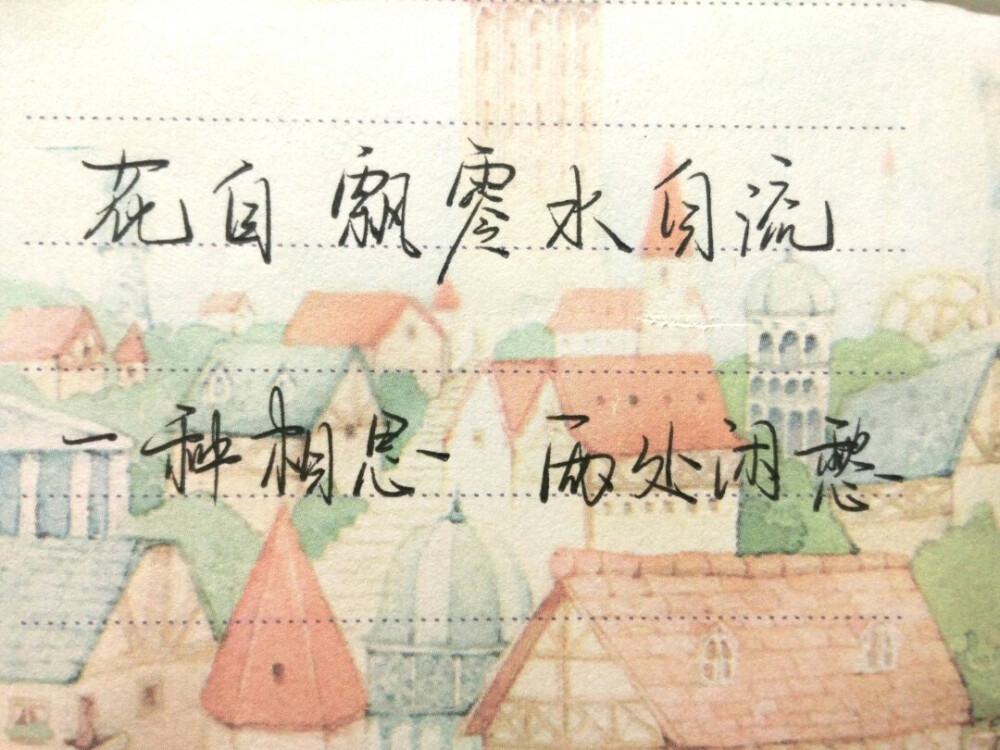 花自飘零水自流
一种相思 两处闲愁